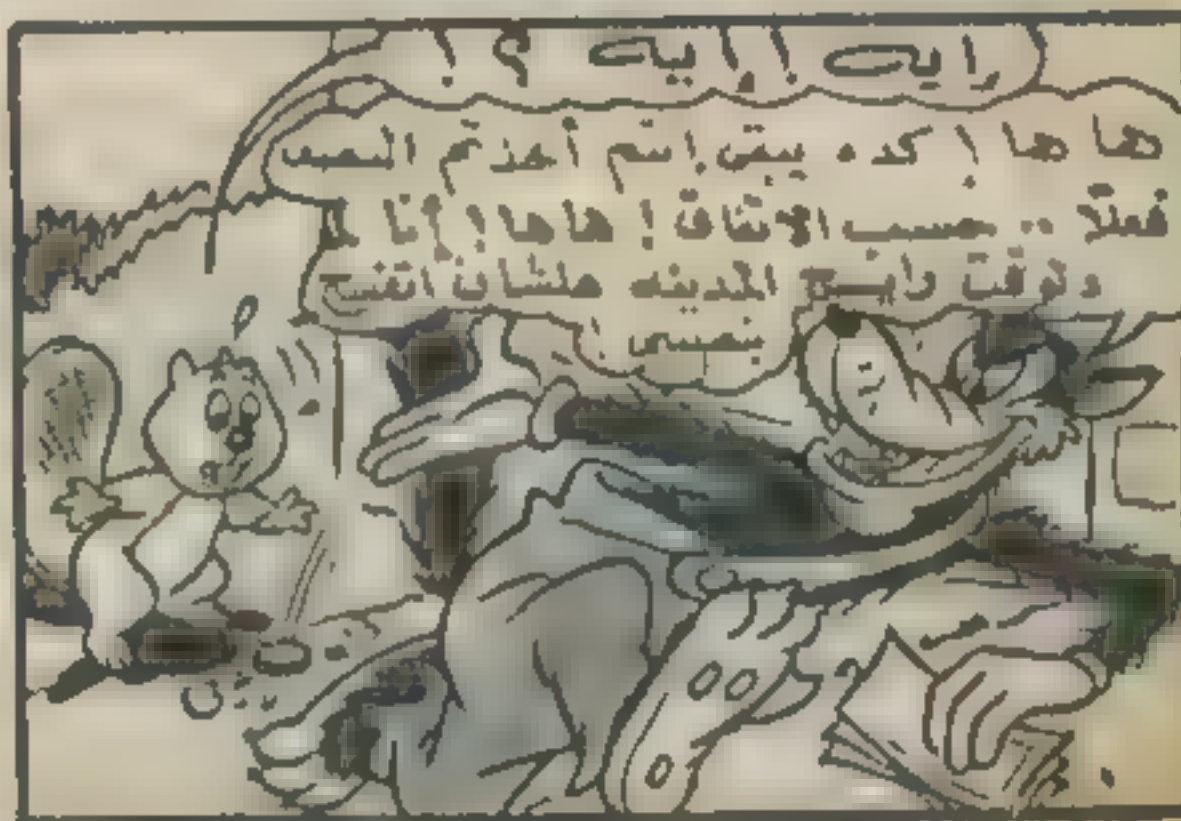 إيه ! إيه ؟ !
ها ها ! كده يبقى إنتم أخذتم النصيب
فعلًا .. حسب الاتفاق ! هاها ! أنا
دلوقت رايح المدينه علشان اتفسح
بنصيبى